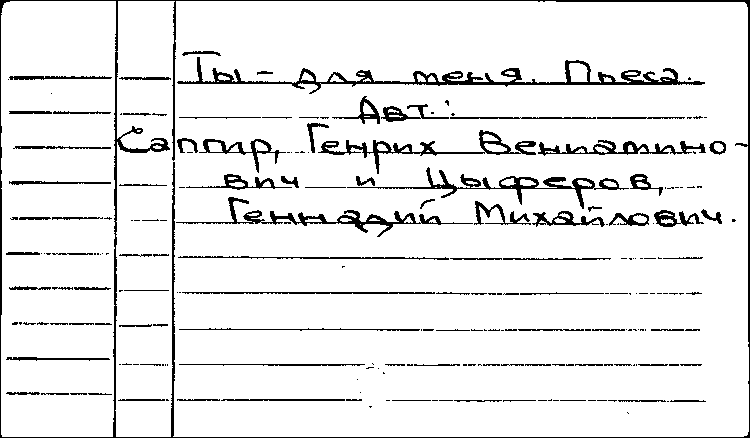 Ты - для меня. Пьеса.
Авт.:
Сапгир, Генрих Вениамино-
вич и Цыферов,
Геннадий Михайлович.